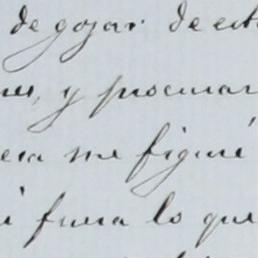 de gozar. de est
y procurar
era me figuré
i fuera lo que